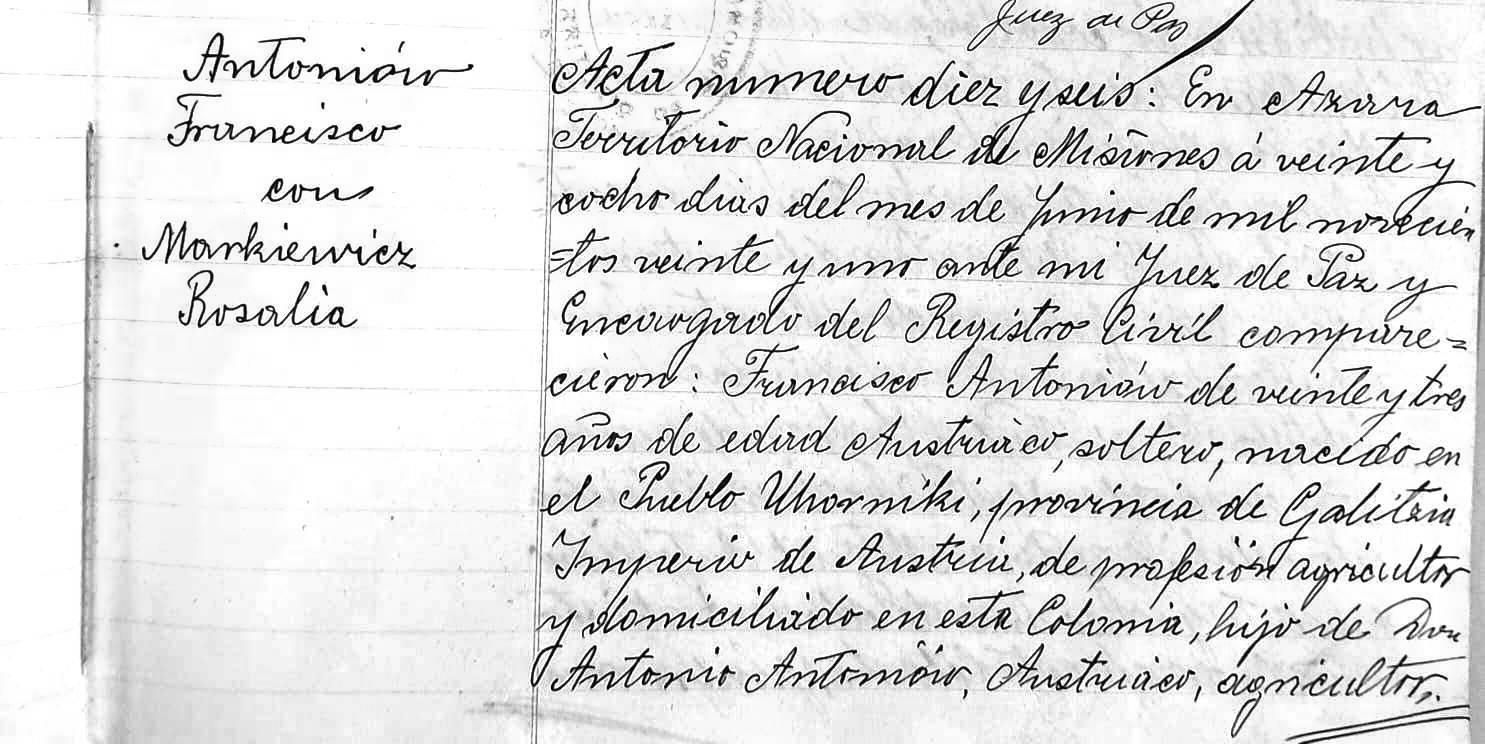 Juez de Paz
Antoniów
Francisco
con
Markiewicz
Rosalia
Acta numero diez y seis: En Azara
Territorio Nacional de Misiones á veinte y
ocho dias del mes de Junio de mil novecien
=tos veinte y uno ante mi Juez de Paz y
Encargado del Registro Civil compare=
cieron: Francisco Antoniów de veinte y tres
años de edad Austriáco, soltero, nacido en
el Pueblo Uhorniki, provincia de Galitzia
Imperio de Austria, de profesión agricultor
y domiciliado en esta Colonia, hijo de Don
Antonio Antoniów, Austriáco, agricultor.